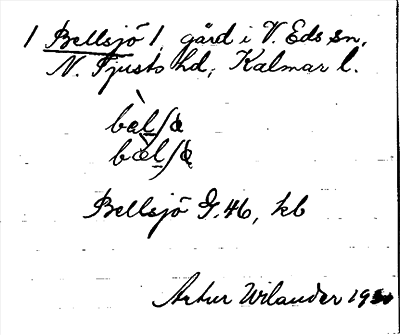 1 Bellsjö 1, gård i V. Eds sn,
N. Tjusts hd, Kalmar l.
Bellsjö G. 46, kb
Artur Wilander